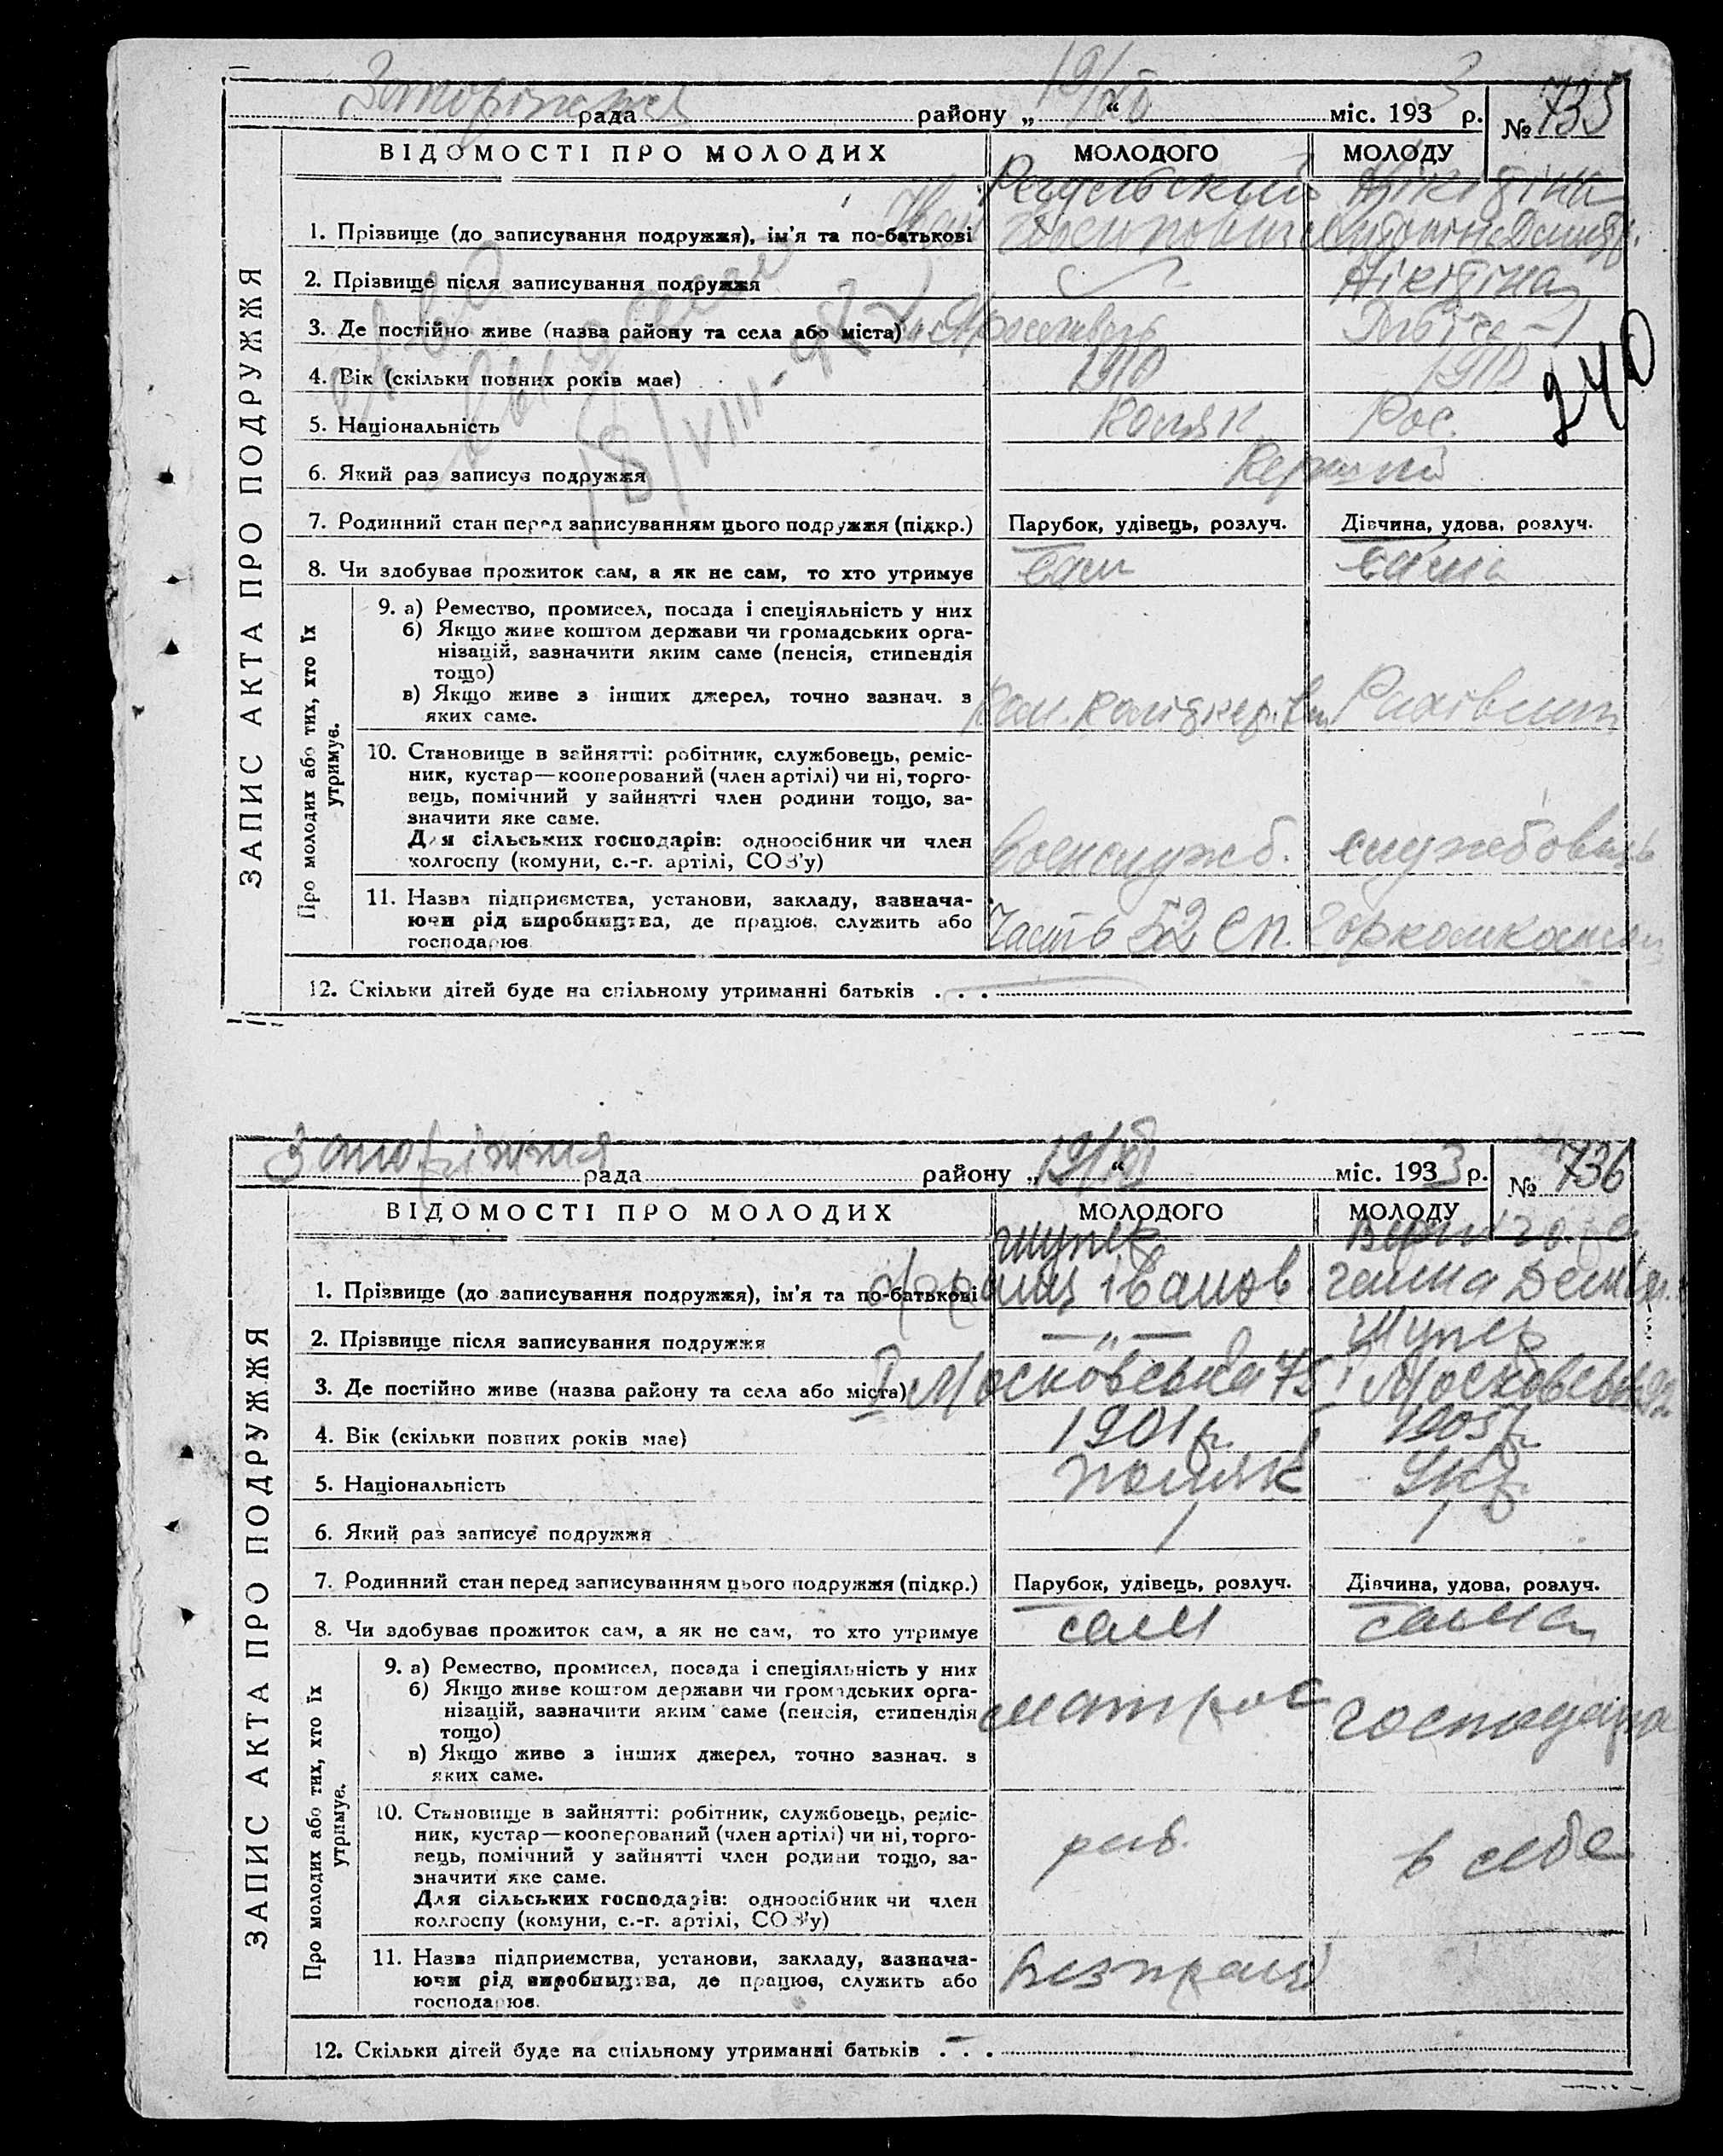 рада району „ 19/XII “ міс. 1933 р. № 735
ВІДОМОСТІ ПРО МОЛОДИХ МОЛОДОГО МОЛОДУ
ЗАПИС АКТА ПРО ПОДРУЖЖЯ
Нікітіна
1. Прізвище (до записування подружжя), ім'я та по-батькові
2. Прізвище після записування подружжя Нікітіна
3. Де постійно живе (назва району та села або міста)
4. Вік (скільки повних років має) 1910 1910
5. Національність Поляк Рос.
6. Який раз записує подружжя Перший
7. Родинний стан перед записуванням цього подружжя (підкр.) Парубок, удівець, розлуч. Дівчина, удова, розлуч.
8. Чи здобував прожиток сам, а як не сам, то хто утримує сам сама
Про молодих або тих, хто їх утримує.
9. а) Ремество, промисел, посада і спеціяльність у них
б) Якщо живе коштом держави чи громадських орга-
нізацій, зазначити яким саме (пенсія, стипендія
тощо)
в) Якщо живе з інших джерел, точно зазнач. з
яких саме.
10. Становище в зайнятті: робітник, службовець, реміс-
ник, кустар—кооперований (член артілі) чи ні, торго-
вець, помічний у зайнятті член родини тощо, за-
значити яке саме.
Для сільських господарів: одноосібник чи член
колгоспу (комуни, с.-г. артілі, СОЗ'у) Военнослужб. службовець
11. Назва підприємства, установи, закладу, зазнача-
ючи рід виробництва, де працює, служить або
господарює Часть 52 сп.
12. Скільки дітей буде на спільному утриманні батьків . . .
18/VIII-
240
Запоріжжя рада району „ 19/XII “ міс. 1933 р. № 736
ВІДОМОСТІ ПРО МОЛОДИХ МОЛОДОГО МОЛОДУ
ЗАПИС АКТА ПРО ПОДРУЖЖЯ
1. Прізвище (до записування подружжя), ім'я та по-батькові Франц Іванов Ганна Демян.
2. Прізвище після записування подружжя — „ —
3. Де постійно живе (назва району та села або міста) Московська 75 Московська
4. Вік (скільки повних років має) 1901 р. 1905 р.
5. Національність поляк Укр.
6. Який раз записує подружжя 1 1
7. Родинний стан перед записуванням цього подружжя (підкр.) Парубок, удівець, розлуч. Дівчина, удова, розлуч.
8. Чи здобував прожиток сам, а як не сам, то хто утримує сам сама
Про молодих або тих, хто їх утримує.
9. а) Ремество, промисел, посада і спеціяльність у них
б) Якщо живе коштом держави чи громадських орга-
нізацій, зазначити яким саме (пенсія, стипендія матрос господарка
тощо)
в) Якщо живе з інших джерел, точно зазнач. з
яких саме.
10. Становище в зайнятті: робітник, службовець, реміс-
ник, кустар—кооперований (член артілі) чи ні, торго-
вець, помічний у зайнятті член родини тощо, за- роб. в себе
значити яке саме.
Для сільських господарів: одноосібник чи член
колгоспу (комуни, с.-г. артілі, СОЗ'у)
11. Назва підприємства, установи, закладу, зазнача-
ючи рід виробництва, де працює, служить або
господарює.
12. Скільки дітей буде на спільному утриманні батьків . . .